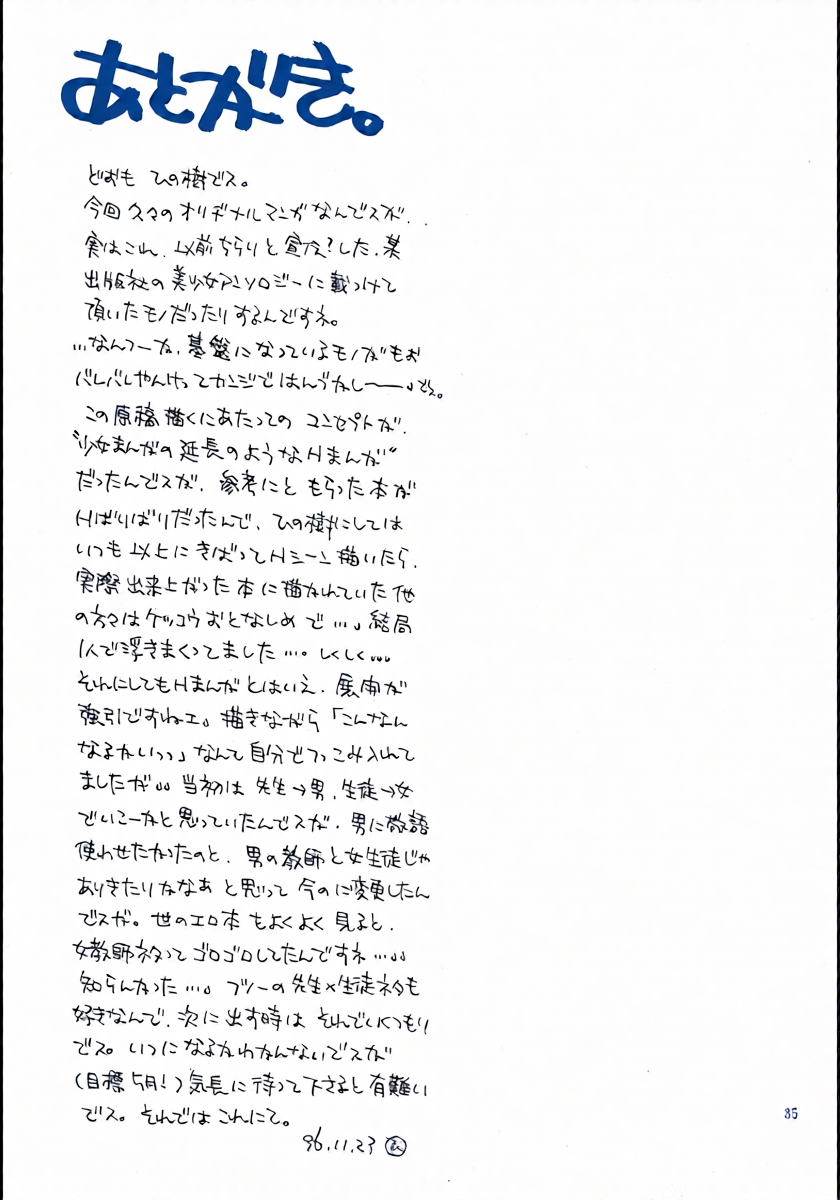 あとがき。
どおも ひの樹でス。
今回 久々のオリヂナルマンガなんでスが..
実はこれ、以前ちらりと宣伝?した、某
出版社の美少女アンソロジーに載っけて
頂いたモノだったりするんですネ。
…なんつーか、基盤になっているモノがもお
バレバレやんけってカンジではんづかしー——。でス。
この原稿描くにあたっての コンセプトが、
“少女まんがの延長のようなHまんが”
だったんでスが、参考にと もらった本が
Hばりばりだったんで、ひの樹にしては
いつも以上に きばってHシーン描いたら、
実際出来上がった本に描かれていた他
の方々はケッコウおとなしめ で…。結局
1人で浮きまくってました…。しくしく…
それにしてもHまんがとはいえ、展開が
強引ですねエ。描きながら「こんなん
なるかいっっ」なんて自分でつっこみ入れて
ましたが。。当初は 先生→男、生徒→女
でいこーかと思っていたんでスが、男に敬語
使わせたかったのと、男の教師と女生徒じゃ
ありきたりかなあ と思って 今のに変更したん
でスが。世のエロ本 もよくよく見ると、
女教師ネタって ゴロゴロしてたんですネ…。。
知らんかった…。フツーの先生×生徒ネタも
好きなんで、次に出す時は それでいくつもり
でス。いつになるかわかんないでスが
(目標5月!)気長に待って下さると有難い
でス。それでは これにて。
96.11.23
35